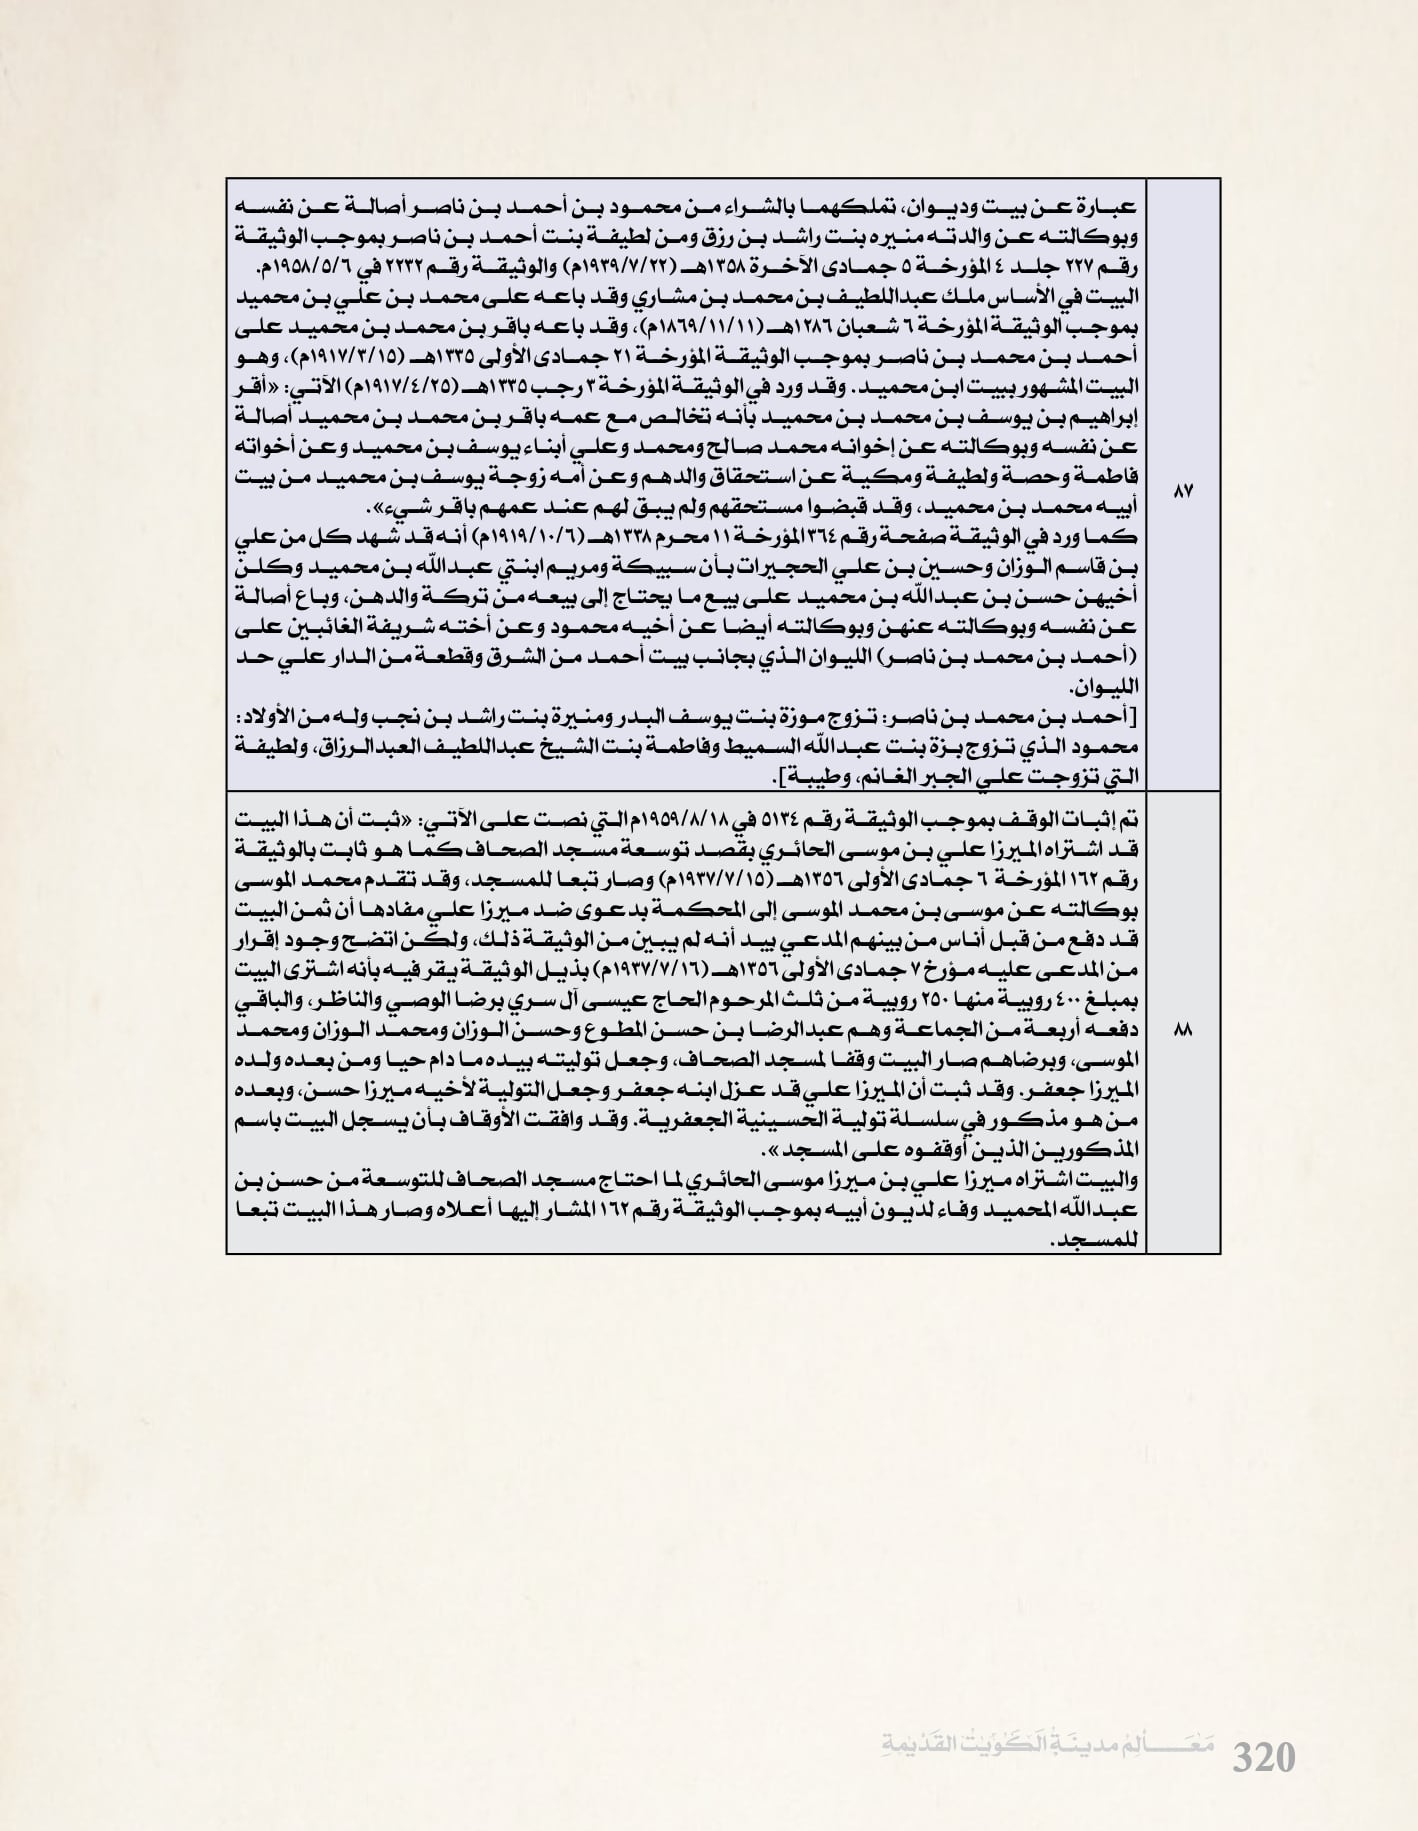 ٨٧
عبارة عن بيت وديوان، تملكهما بالشراء من محمود بن أحمد بن ناصر أصالة عن نفسه
وبوكالته عن والدته منيره بنت راشد بن رزق ومن لطيفة بنت أحمد بن ناصر بموجب الوثيقة
رقم ٢٢٧ جلد ٤ المؤرخة ٥ جمادى الآخرة ١٣٥٨هـ (١٩٣٩/٧/٢٢م) والوثيقة رقم ٢٢٣٢ في ١٩٥٨/٥/٦م.
البيت في الأساس ملك عبداللطيف بن محمد بن مشاري وقد باعه على محمد بن علي بن محميد
بموجب الوثيقة المؤرخة ٦ شعبان ١٢٨٦هـ (١٨٦٩/١١/١١م)، وقد باعه باقر بن محمد بن محميد على
أحمد بن محمد بن ناصر بموجب الوثيقة المؤرخة ٢١ جمادى الأولى ١٣٣٥هـ (١٩١٧/٣/١٥م)، وهو
البيت المشهور ببيت ابن محميد. وقد ورد في الوثيقة المؤرخة ٣ رجب ١٣٣٥هـ (١٩١٧/٤/٢٥م) الآتي: «أقر
إبراهيم بن يوسف بن محمد بن محميد بأنه تخالص مع عمه باقر بن محمد بن محميد أصالة
عن نفسه وبوكالته عن إخوانه محمد صالح ومحمد وعلي أبناء يوسف بن محميد وعن أخواته
فاطمة وحصة ولطيفة ومكية عن استحقاق والدهم وعن أمه زوجة يوسف بن محميد من بيت
أبيه محمد بن محميد، وقد قبضوا مستحقهم ولم يبق لهم عند عمهم باقر شيء».
كما ورد في الوثيقة صفحة رقم ٣٦٤ المؤرخة ١١ محرم ١٣٣٨هـ (١٩١٩/١٠/٦م) أنه قد شهد كل من علي
بن قاسم الوزان وحسين بن علي الحجيرات بأن سبيكة ومريم ابنتي عبدالله بن محميد وكلن
أخيهن حسن بن عبدالله بن محميد على بيع ما يحتاج إلى بيعه من تركة والدهن، وباع أصالة
عن نفسه وبوكالته عنهن وبوكالته أيضا عن أخيه محمود وعن أخته شريفة الغائبين على
(أحمد بن محمد بن ناصر) الليوان الذي بجانب بيت أحمد من الشرق وقطعة من الدار علي حد
الليوان.
[أحمد بن محمد بن ناصر: تزوج موزة بنت يوسف البدر ومنيرة بنت راشد بن نجب وله من الأولاد:
محمود الذي تزوج بزة بنت عبدالله السميط وفاطمة بنت الشيخ عبداللطيف العبدالرزاق، ولطيفة
التي تزوجت علي الجبر الغانم، وطيبة].
٨٨
تم إثبات الوقف بموجب الوثيقة رقم ٥١٣٤ في ١٩٥٩/٨/١٨م التي نصت على الآتي: «ثبت أن هذا البيت
قد اشتراه الميرزا علي بن موسى الحائري بقصد توسعة مسجد الصحاف كما هو ثابت بالوثيقة
رقم ١٦٢ المؤرخة ٦ جمادى الأولى ١٣٥٦هـ (١٩٣٧/٧/١٥م) وصار تبعا للمسجد، وقد تقدم محمد الموسى
بوكالته عن موسى بن محمد الموسى إلى المحكمة بدعوى ضد ميرزا علي مفادها أن ثمن البيت
قد دفع من قبل أناس من بينهم المدعي بيد أنه لم يبين من الوثيقة ذلك، ولكن اتضح وجود إقرار
من المدعى عليه مؤرخ ٧ جمادى الأولى ١٣٥٦هـ (١٩٣٧/٧/١٦م) بذيل الوثيقة يقر فيه بأنه اشترى البيت
بمبلغ ٤٠٠ روبية منها ٢٥٠ روبية من ثلث المرحوم الحاج عيسى آل سري برضا الوصي والناظر، والباقي
دفعه أربعة من الجماعة وهم عبدالرضا بن حسن المطوع وحسن الوزان ومحمد الوزان ومحمد
الموسى، وبرضاهم صار البيت وقفا لمسجد الصحاف، وجعل توليته بيده ما دام حيا ومن بعده ولده
الميرزا جعفر. وقد ثبت أن الميرزا علي قد عزل ابنه جعفر وجعل التولية لأخيه ميرزا حسن، وبعده
من هو مذكور في سلسلة تولية الحسينية الجعفرية. وقد وافقت الأوقاف بأن يسجل البيت باسم
المذكورين الذين أوقفوه على المسجد».
والبيت اشتراه ميرزا علي بن ميرزا موسى الحائري لما احتاج مسجد الصحاف للتوسعة من حسن بن
عبدالله المحميد وفاء لديون أبيه بموجب الوثيقة رقم ١٦٢ المشار إليها أعلاه وصار هذا البيت تبعا
للمسجد.
320 مَعَـــالِمُ مدينَةِ الكوَيْت القَديْمةِ